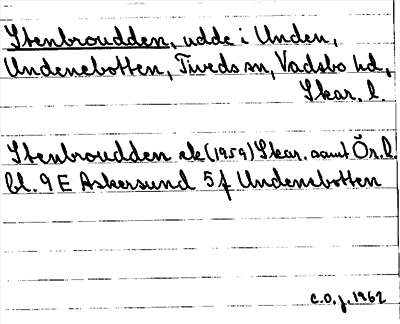 Stenbroudden, udde i Unden,
Undenebotten, Tiveds sn, Vadsbo hd,
Skar. l.
Stenbroudden ek (1959) Skar. samt Ör. l.
bl. 9 E Askersund 5 f Undenebotten
C.O.J. 1962